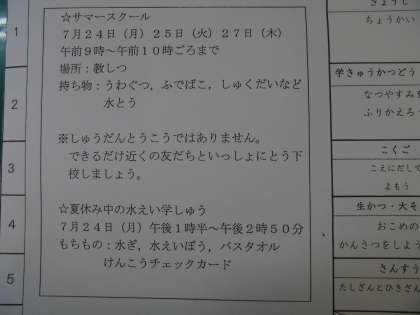 ☆サマースクール
７月２４日（月）２５日（火）２７日（木）
午前９時～午前１０時ごろまで
場所：教しつ
持ち物：うわぐつ，ふでばこ，しゅくだいなど
水とう
※しゅうだんとうこうではありません。
できるだけ近くの友だちといっしょにとう下
校しましょう。
☆夏休み中の水えい学しゅう
７月２４日（月）午後１時半～午後２時５０分
もちもの：水ぎ，水えいぼう，バスタオル
けんこうチェックカード
1
2
3
4
5
ちょうかい
学きゅうかつどう
なつやすみを
ふりかえろう
こくご
こえにだして
よもう
生かつ・大そ
おこめの
かんさつをしよう
さんすう
たしざんとひきざん